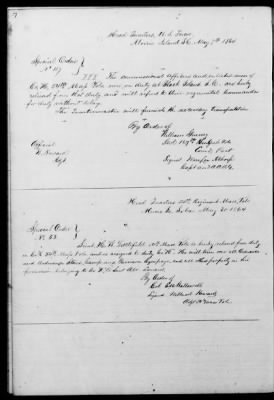 Head Quarters, U.S. Forces
Morris Island S.C. May 7th 1864
Special Order
No. 117
III The commissioned officers and enlisted men of
Co. H. 54th Mass Vols now on duty at Black Island S.C. are hereby
relieved from that duty and will report to their regimental commander
for duty without delay.
The Quartermaster will furnish the necessary transportation
By Order of
William Gurney
Col. 127th New York Vols
Comd. Post
Signed
Capt and A.A.A.G.
Official
Head Quarters 54th Regiment Mass. Vols
Morris Island May 20 1864
Special Order
No. 53
Lieut. H. W. Littlefield 54 Mass Vols is hereby relieved from duty
in Co. 54th Mass Vols and is assigned to duty Co. He will turn over all Ordnance
and Ordnance Stores, Camp and Garrison Equipage and all other property in his
possession belonging to the U.S. to Lieut
By Order of
Col. E. N. Hallowell
Signed
Adjt 54 Mass Vol.